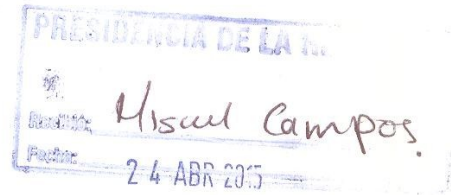 PRESIDENCIA DE LA
Recibido: Miguel Campos
Fecha: 24 ABR 2015